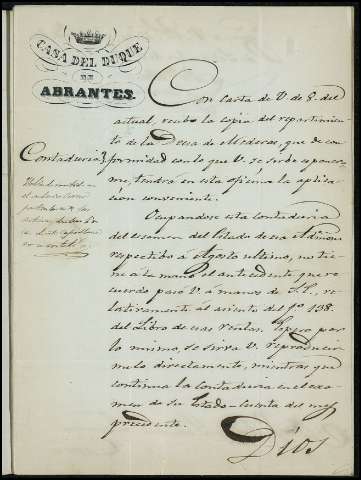 CASA DEL DUQUE
DE
ABRANTES.
Contaduria}
Con carta de V. de 8. del
actual, recibo la copia del repartimiento
de la Deesa de Mederas, que de con-
formidad con lo que V. se sirbe esponer
me, tendrá en esta oficina la aplica-
ción conveniente.
Ocupandose esta Contaduria
del ecsamen del Estado de esa Admon
respectibo á Agosto ultimo, no tie-
ne á la mano el antecedente que re-
cuerdo pasó V. á manos de S.E., re-
latiramente al asiento del fº 138.
del Libro de esas Rentas. Espero por
lo mismo, se sirva V. reproducir
melo directamente, mientras que
continua la Contaduria en el ecsa-
men de su Estado-Cuenta del mes
precedente.
Dios